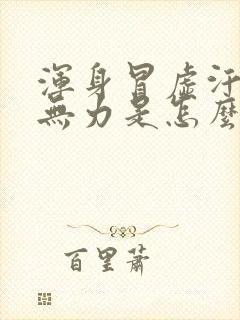 渾身冒虛汗
無力是怎麼
百里蕭